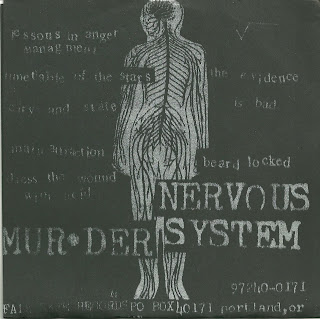 lessons in anger
managment
timetable of the stars the evidence
city and state is bad
main attraction
beard locked
dress the wound
with acid
NERVOUS
MUR*DER SYSTEM
97240-0171
RECORDS PO BOX 40171 portland, or